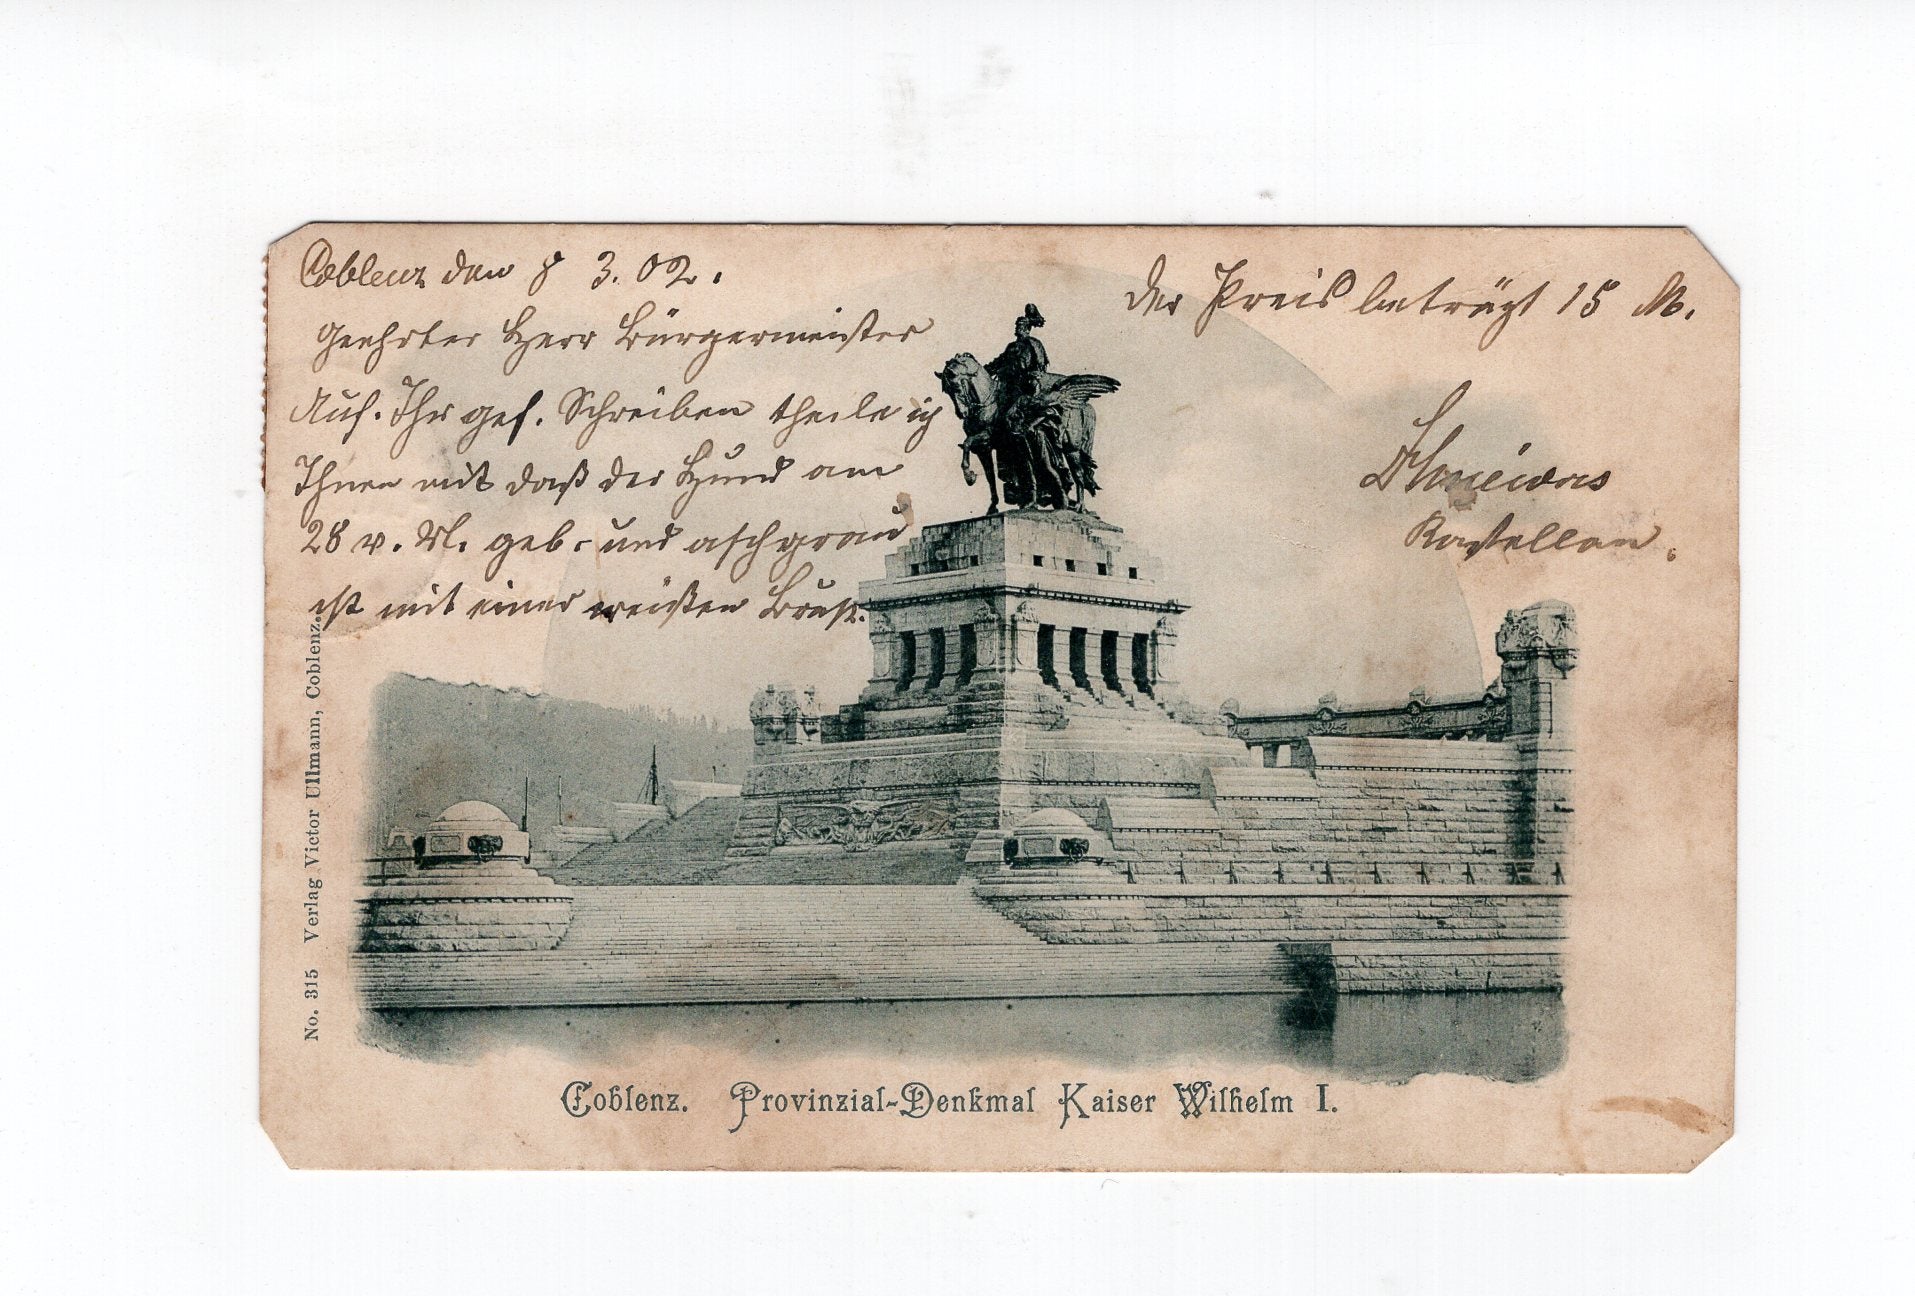 Coblenz den 8 3. 02.
Geehrter Herr Bürgermeister
Auf. Ihr gef. Schreiben theile ich
Ihnen mit daß der Hund am
28 v. M. geb. und aschgrau
ist mit einer weißen Brust.
Der Preis beträgt 15 M.
Kastellan.
No. 315 Verlag Victor Ullmann, Coblenz.
Coblenz. Provinzial-Denkmal Kaiser Wilhelm I.